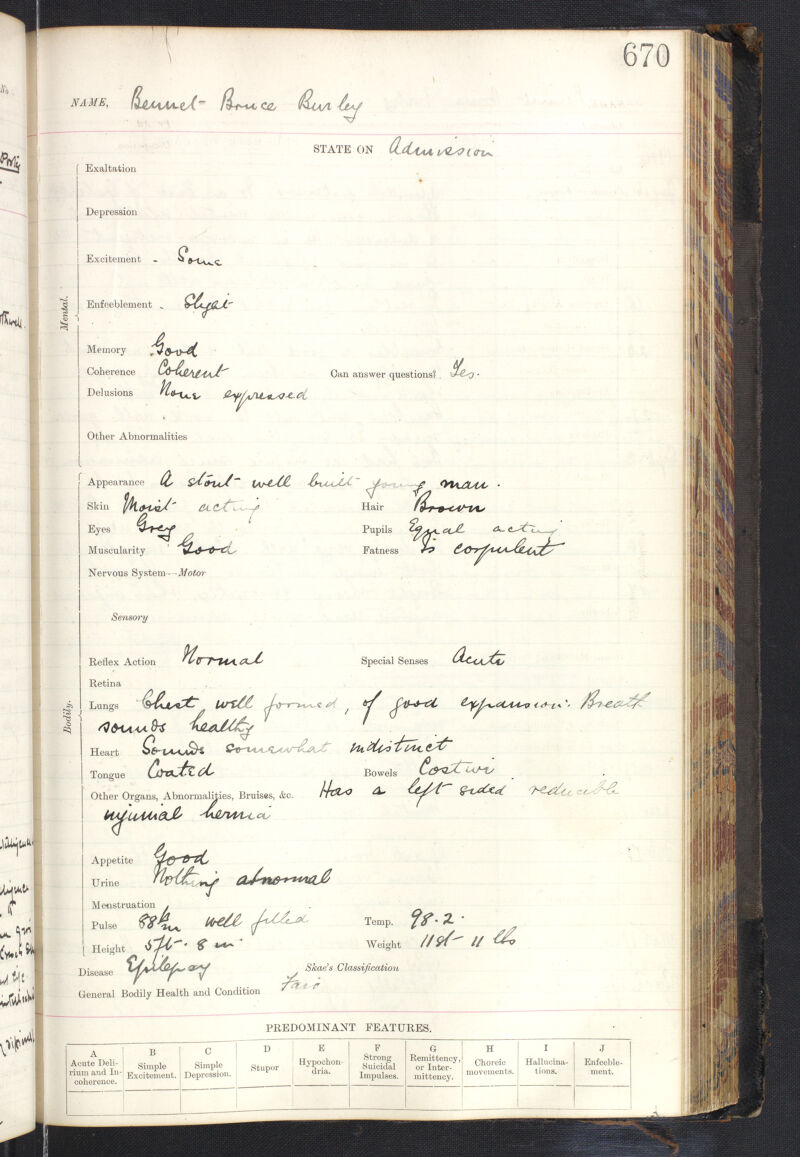 670
NAME, Bennet Bruce Burley
STATE ON Admission
Mental.
Exaltation
Depression
Excitement - Some
Enfeeblement - Slight
Memory Good
Coherence Coherent Can answer questions? Yes.
Delusions None expressed
Other Abnormalities
Bodily.
Appearance A stout well built young man.
Skin Moist acting Hair Brown
Eyes Grey Pupils Equal acting
Muscularity Good Fatness Is corpulent
Nervous System—Motor
Sensory
Reflex Action Normal Special Senses Acute
Retina
Lungs Chest well formed, of good expansion. Breath
sounds healthy
Heart Sounds somewhat indistinct
Tongue Coated Bowels Costive
Other Organs, Abnormalities, Bruises, &c. Has a left sided reducible
inguinal hernia
Appetite Good
Urine Nothing abnormal
Menstruation
Pulse 88 well filled Temp. 98.2.
Height 5ft. 8in. Weight 11st 11 lbs
Disease Epilepsy Skae's Classification
General Bodily Health and Condition Fair
PREDOMINANT FEATURES.
A B C D E F G H I J
Acute Delirium and Incoherence. Simple Excitement. Simple Depression. Stupor Hypochondria. Strong Suicidal Impulses. Remittency, or Intermittency. Choreic movements. Hallucinations. Enfeeblement.